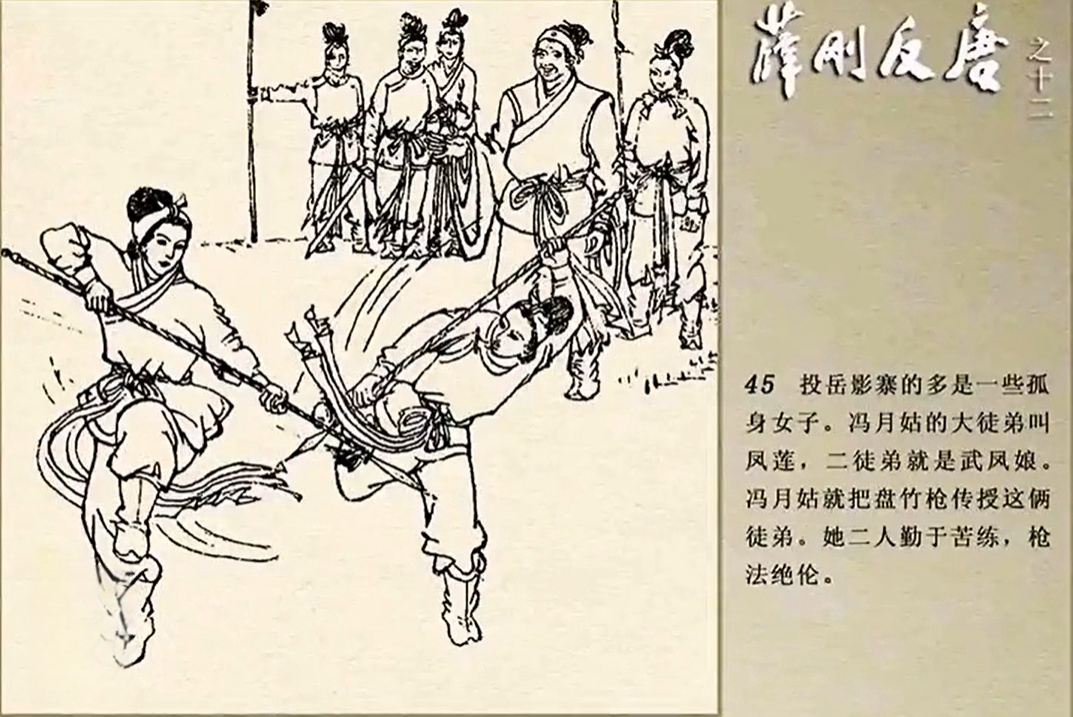 薛刚反唐
之十二
45 投岳影寨的多是一些孤
身女子。冯月姑的大徒弟叫
凤莲，二徒弟就是武凤娘。
冯月姑就把盘竹枪传授这俩
徒弟。她二人勤于苦练，枪
法绝伦。